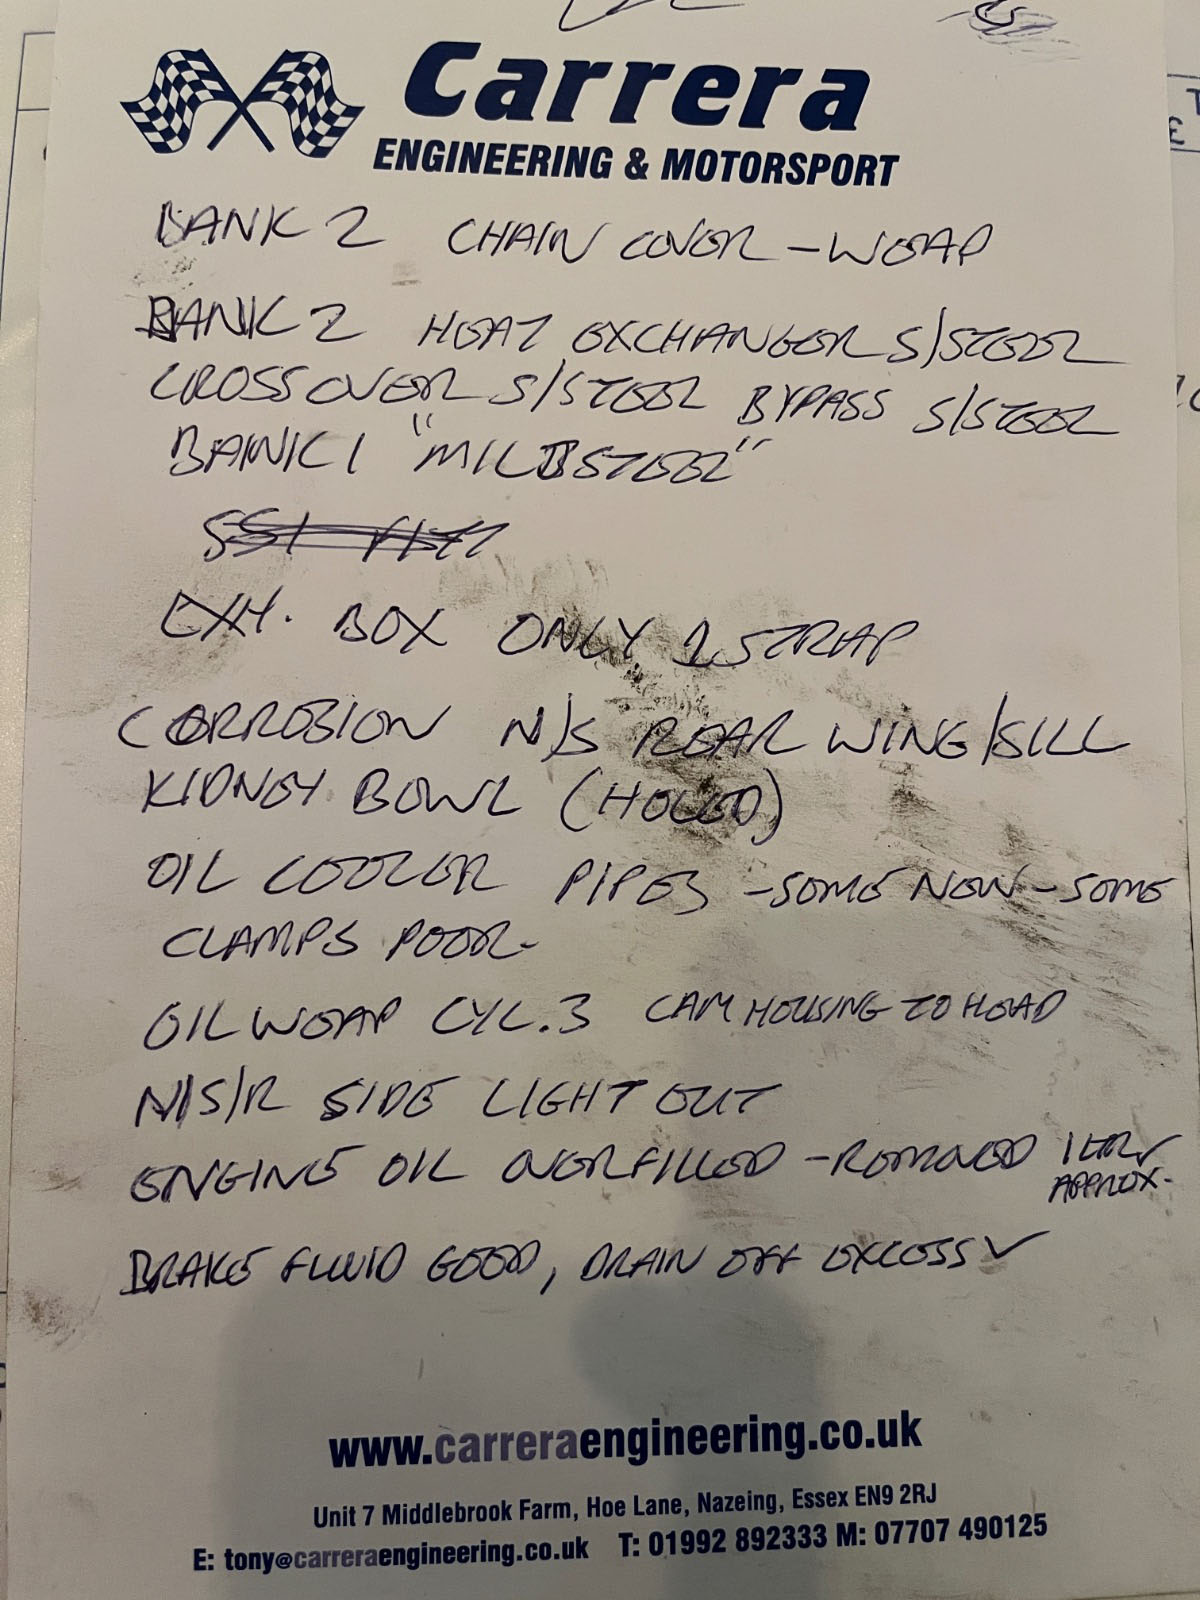 Carrera
ENGINEERING & MOTORSPORT
BANK 2 CHAIN COVER - WEAP
BANK 2 HEAT EXCHANGER S/STEEL
CROSSOVER S/STEEL BYPASS S/STEEL
BANK 1 "MILD STEEL"
EXH. BOX ONLY 1 STRAP
CORROSION N/S REAR WING/SILL
KIDNEY BOWL (HOLED)
OIL COOLER PIPES - SOME NEW - SOME
CLAMPS POOR -
OIL WEAP CYL. 3 CAM HOUSING TO HEAD
N/S/R SIDE LIGHT OUT
ENGINE OIL OVERFILLED - REMOVED 1 LTR ✓
APPROX -
BRAKE FLUID GOOD, DRAIN OFF EXCESS ✓
www.carreraengineering.co.uk
Unit 7 Middlebrook Farm, Hoe Lane, Nazeing, Essex EN9 2RJ
E: tony@carreraengineering.co.uk T: 01992 892333 M: 07707 490125